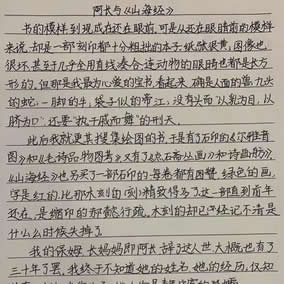 阿长与《山海经》
书的模样到现在还在眼前。可是从还在眼睛前的模样
来说,却是一部刻印都十分粗拙的本子。纸张很黄,图像也
很坏,甚至于几乎全用直线凑合,连动物的眼睛也都是长方
形的。但那是我最为心爱的宝书,看起来,确是人面的兽,九头
的蛇,一脚的牛,袋子似的帝江,没有头而“以乳为目,以
脐为口”,还要“执干戚而舞”的刑天。
此后我就更其搜集绘图的书,于是有了石印的《尔雅音
图》和《毛诗品物图考》,又有了《点石斋丛画》和《诗画舫》,
《山海经》也另买了一部石印的,每卷都有图赞,绿色的画,
字是红的,比那木刻的精致得多了。这一部直到前年
还在,是缩印的郝懿行疏。木刻的却已经记不清是
什么时候失掉了。
我的保姆,长妈妈即阿长,辞了这人世,大概也有了
三十年了罢。我终于不知道她的姓名,她的经历,仅知